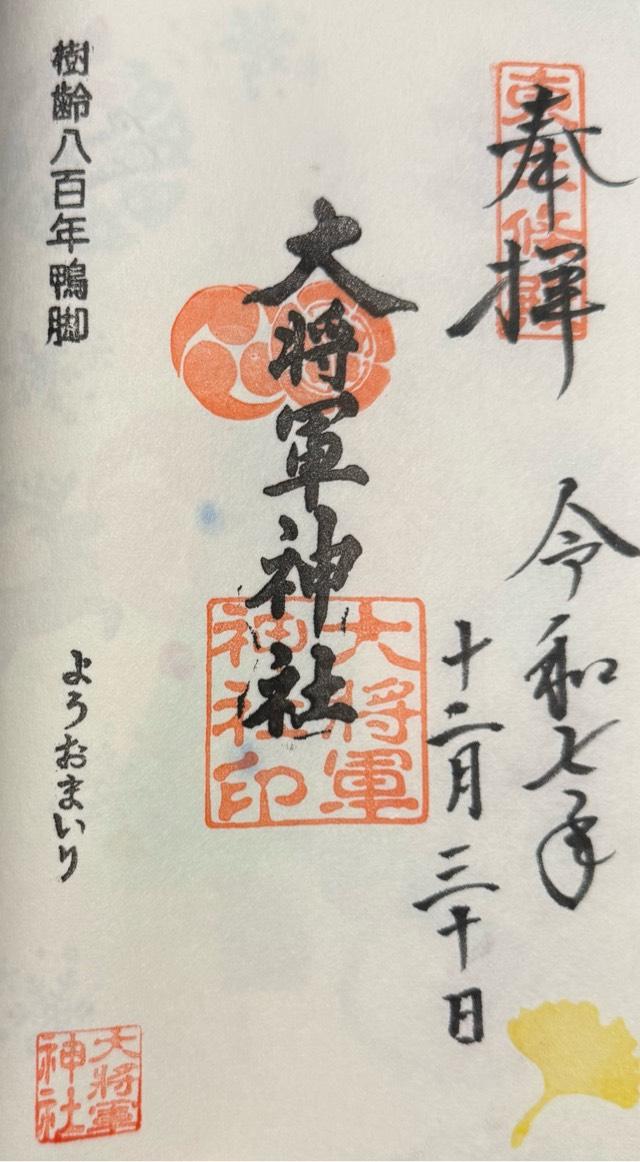 奉拝
東三條殿
令和七年
十二月三十日
大将軍神社
大将軍
神社印
樹齢八百年鴨脚
ようおまいり
大将軍
神社